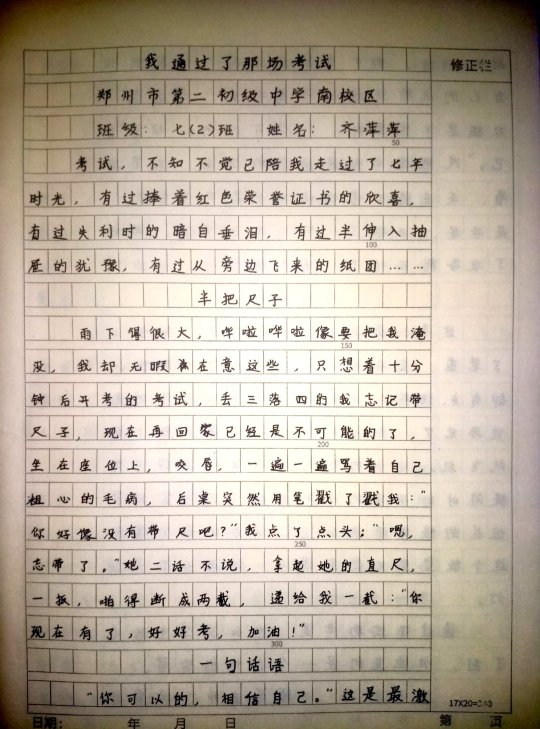 我通过了那场考试
修正栏
郑州市第二初级中学南校区
班级：七(2)班 姓名：齐萍萍
50
考试，不知不觉已陪我走过了七年
时光，有过捧着红色荣誉证书的欣喜，
有过失利时的暗自垂泪，有过半伸入抽
100
屉的犹豫，有过从旁边飞来的纸团……
半把尺子
雨下得很大，哗啦哗啦像要把我淹
150
没，我却无暇在意这些，只想着十分
钟后开考的考试，丢三落四的我忘记带
尺子，现在再回家已经是不可能的了，
200
坐在座位上，咬唇，一遍一遍骂着自己
粗心的毛病，后桌突然用笔戳了戳我：“
你好像没有带尺吧？”我点了点头；“嗯，
250
忘带了。”她二话不说，拿起她的直尺，
一扳，啪得断成两截，递给我一截：“你
现在有了，好好考，加油！”
300
一句话语
“你可以的，相信自己。”这是最激
17X20=340
日期： 年 月 日 第 页